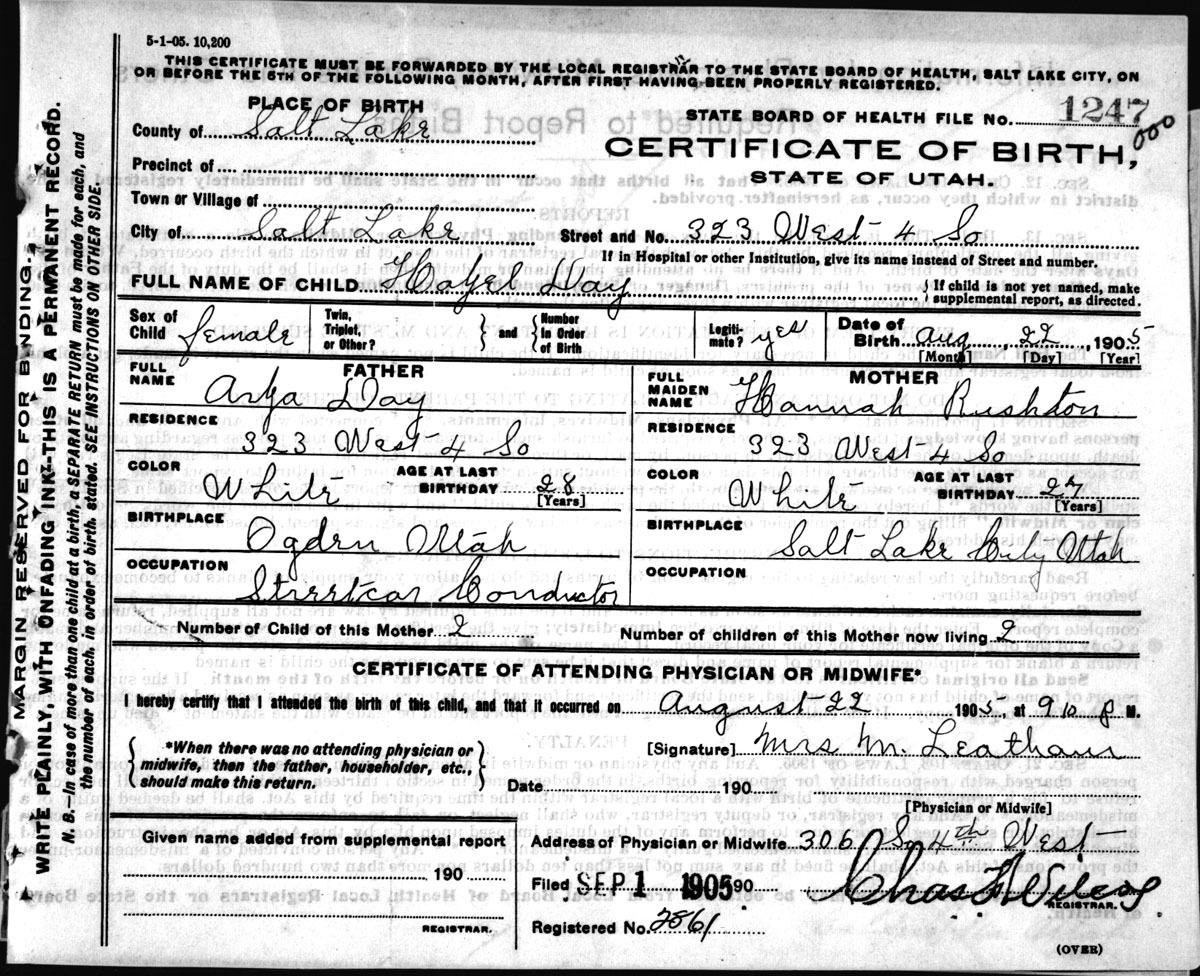 5-1-05. 10,200
THIS CERTIFICATE MUST BE FORWARDED BY THE LOCAL REGISTRAR TO THE STATE BOARD OF HEALTH, SALT LAKE CITY, ON
OR BEFORE THE 5TH OF THE FOLLOWING MONTH, AFTER FIRST HAVING BEEN PROPERLY REGISTERED.
MARGIN RESERVED FOR BINDING.
WRITE PLAINLY, WITH UNFADING INK-THIS IS A PERMANENT RECORD.
N. B.—In case of more than one child at a birth, a SEPARATE RETURN must be made for each, and
the number of each, in order of birth, stated. SEE INSTRUCTIONS ON OTHER SIDE.
PLACE OF BIRTH
STATE BOARD OF HEALTH FILE NO. 1247
000
County of Salt Lake
CERTIFICATE OF BIRTH,
Precinct of
STATE OF UTAH.
Town or Village of
City of Salt Lake Street and No. 323 West 4 So
If in Hospital or other Institution, give its name instead of Street and number.
FULL NAME OF CHILD Hazel Day { If child is not yet named, make
supplemental report, as directed.
Sex of Child female Twin, Triplet, or Other? } and { Number In Order of Birth Legiti-mate? yes Date of Birth Aug, 22, 1905
[Month] [Day] [Year]
FATHER MOTHER
FULL NAME Day FULL MAIDEN NAME Hannah Rushton
RESIDENCE 323 West 4 So RESIDENCE 323 West 4 So
COLOR White AGE AT LAST BIRTHDAY 28 [Years] COLOR White AGE AT LAST BIRTHDAY 27 [Years]
BIRTHPLACE Ogden Utah BIRTHPLACE Salt Lake City Utah
OCCUPATION Streetcar Conductor OCCUPATION
Number of Child of this Mother 2 Number of children of this Mother now living 2
CERTIFICATE OF ATTENDING PHYSICIAN OR MIDWIFE*
I hereby certify that I attended the birth of this child, and that it occurred on August 22 1905, at 9 10 P M.
{ *When there was no attending physician or
midwife, then the father, householder, etc.,
should make this return. }
[Signature] Mrs M. Leatham
Date 190
[Physician or Midwife]
Given name added from supplemental report
190
REGISTRAR.
Address of Physician or Midwife 306 So 4th West
Filed SEP 1 1905 90
REGISTRAR.
Registered No. 2861
(OVER)